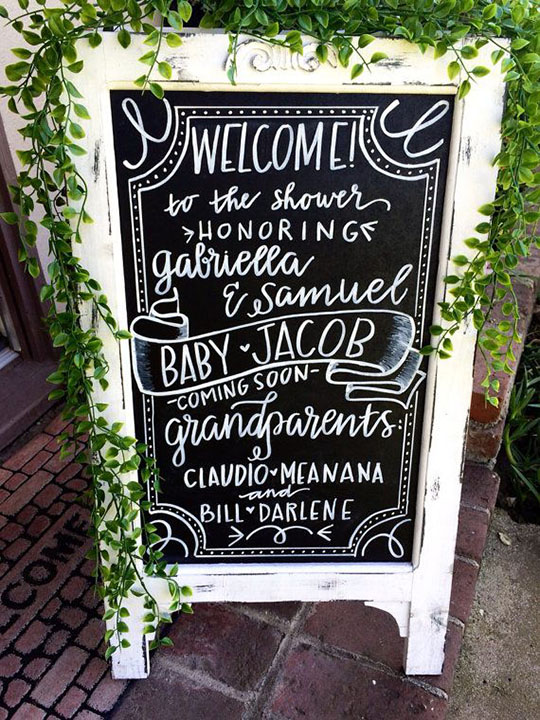 WELCOME!
to the shower
HONORING
gabriella
& Samuel
BABY ♥ JACOB
-COMING SOON-
grandparents:
CLAUDIO ♥ MEANANA
and
BILL ♥ DARLENE
COME